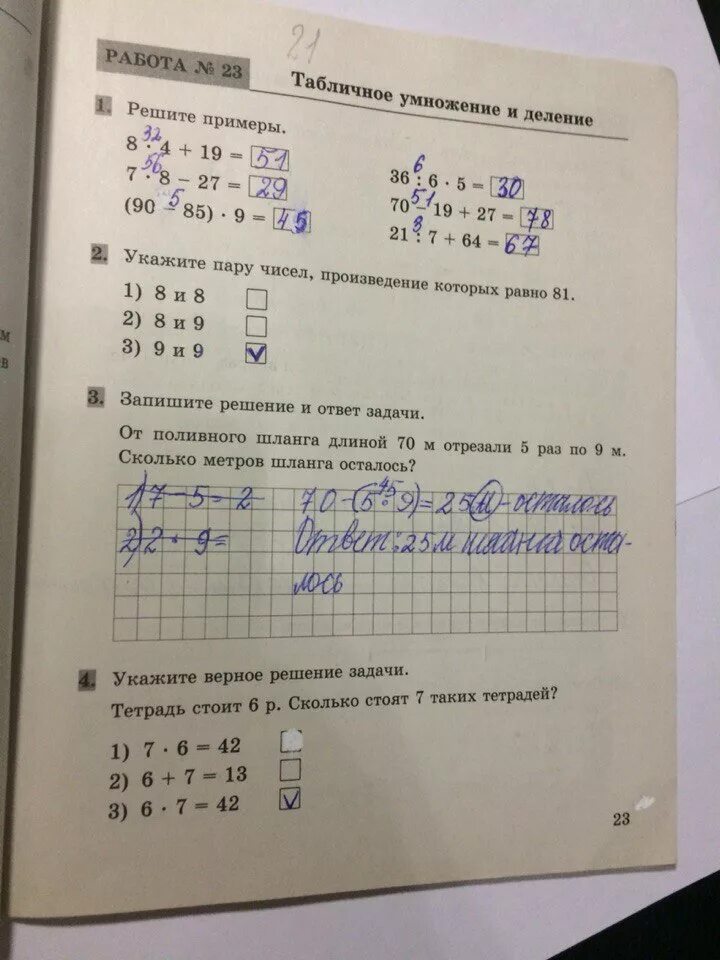 21
РАБОТА № 23
Табличное умножение и деление
1. Решите примеры.
32
8 · 4 + 19 = 51
56
7 · 8 − 27 = 29
5
(90 − 85) · 9 = 45
6
36 : 6 · 5 = 30
51
70 − 19 + 27 = 78
3
21 : 7 + 64 = 67
2. Укажите пару чисел, произведение которых равно 81.
1) 8 и 8
2) 8 и 9
3) 9 и 9 V
3. Запишите решение и ответ задачи.
От поливного шланга длиной 70 м отрезали 5 раз по 9 м.
Сколько метров шланга осталось?
1) 7 − 5 = 2
2) 2 · 9 =
45
70 − (5 · 9) = 25 (м) - осталось
Ответ: 25 м шланга оста-
лось
4. Укажите верное решение задачи.
Тетрадь стоит 6 р. Сколько стоят 7 таких тетрадей?
1) 7 · 6 = 42
2) 6 + 7 = 13
3) 6 · 7 = 42 V
23
м
в